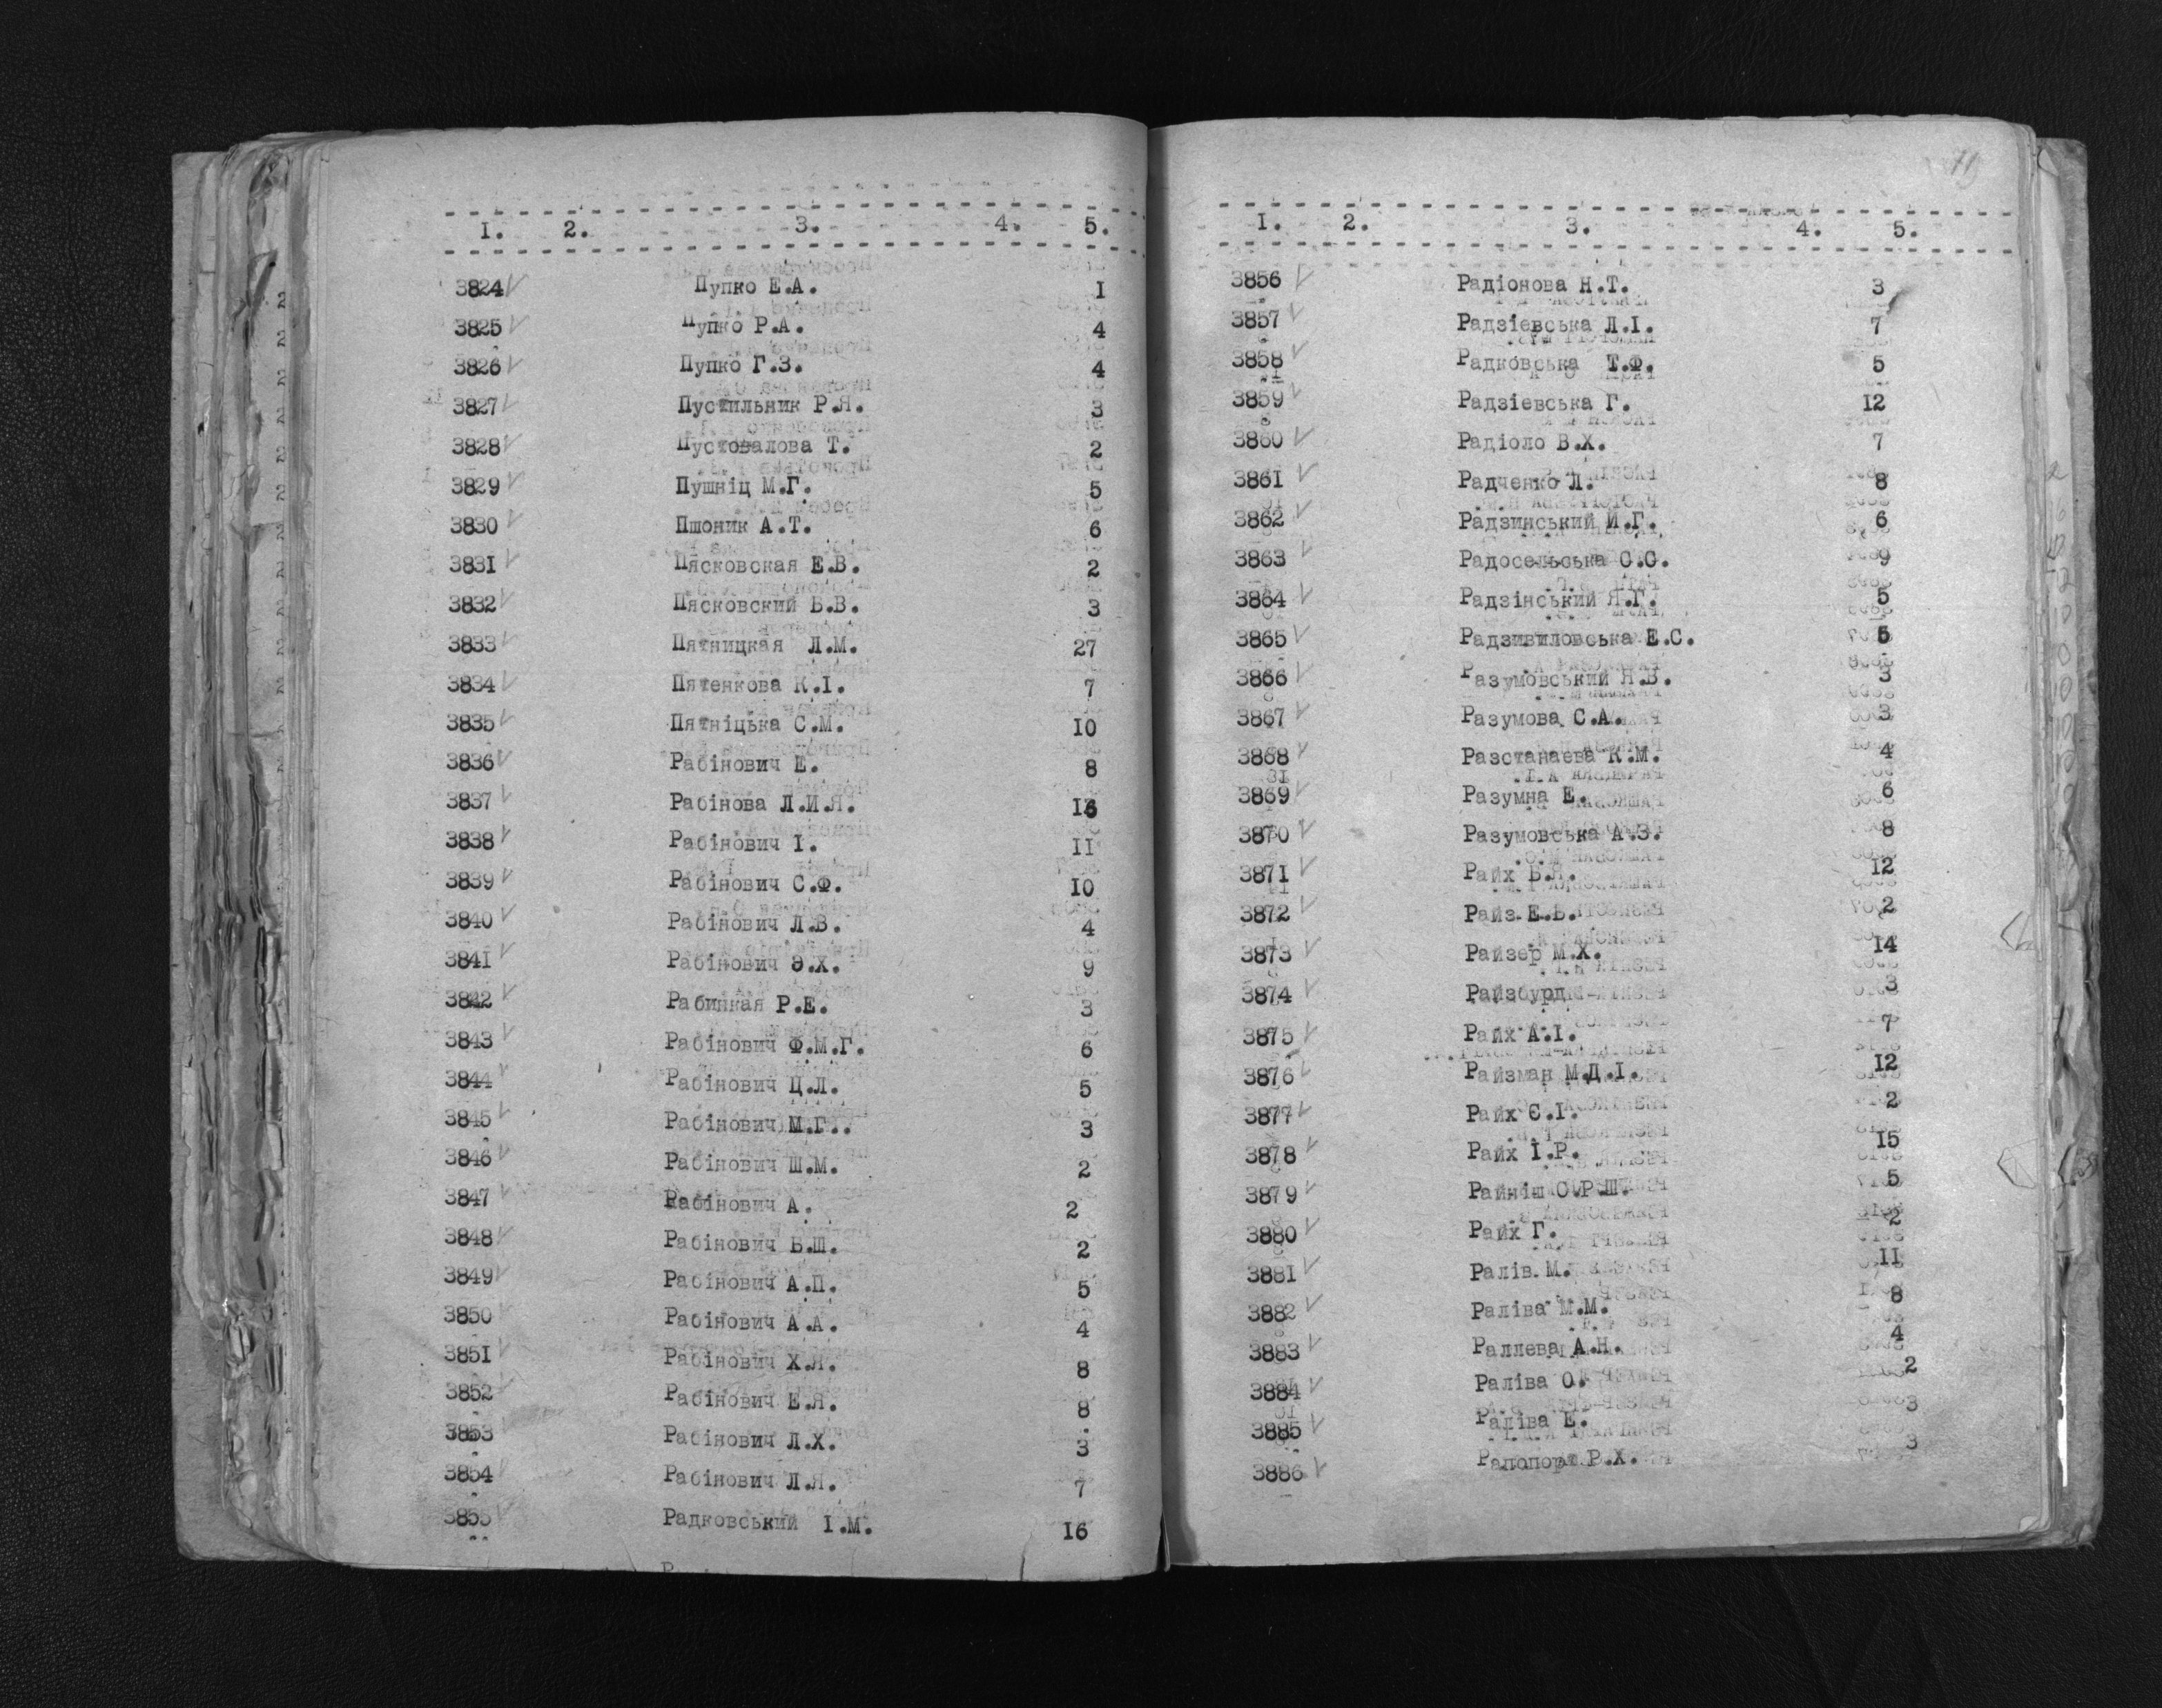 I. 2. 3. 4. 5.
3824 Пупко Е.А. I
3825 Пупко Р.А. 4
3826 Пупко Г.З. 4
3827 Пустильник Р.Я. 3
3828 Пустовалова Т. 2
3829 Пушніц М.Г. 5
3830 Пшоник А.Т. 6
3831 Пясковская Е.В. 2
3832 Пясковский Б.В. 3
3833 Пятницкая Л.М. 27
3834 Пятенкова К.І. 7
3835 Пятніцька С.М. I0
3836 Рабінович Е. 8
3837 Рабінова Л.И.Я.
3838 Рабінович І. II
3839 Рабінович С.Ф. I0
3840 Рабінович Л.В. 4
3841 Рабінович Э.Х. 9
3842 Рабинкая Р.Е. 3
3843 Рабінович Ф.М.Г. 6
3844 Рабінович Ц.Л. 5
3845 Рабінович М.Г.. 3
3846 Рабінович Ш.М. 2
3847 Рабінович А. 2
3848 Рабінович Б.Ш. 2
3849 Рабінович А.П. 5
3850 Рабінович А.А. 4
3851 Рабінович Х.Я. 8
3852 Рабінович Е.Я. 8
3853 Рабінович Л.Х. 3
3854 Рабінович Л.Я. 7
3855 Радковський І.М. I6
I. 2. 3. 4. 5.
3856 Радіонова Н.Т. 3
3857 Радзіевська Л.І. 7
3858 Радковська Т.Ф. 5
3859 Радзіевська Г. I2
3860 Радіоло В.Х. 7
3861 Радченко Л. 8
3862 Радзинський И.Г. 6
3863 Радосельська С.С. 9
3864 Радзінський Я.Г. 5
3865 Радзивиловська Е.С. 5
3866 Разумовський Я.В. 3
3867 Разумова С.А. 3
3868 Разстанаева К.М. 4
3869 Разумна Е. 6
3870 Разумовська А.З. 8
3871 Райх Б.Я. I2
3872 Райз Е.Б. 2
3873 Райзер М.Х. I4
3874 Райзбурд 3
3875 Райх А.І. 7
3876 Райзман М.Д.І. I2
3877 Райх Є.І. 2
3878 Райх І.Р. I5
3879 Райніш О.Р.Ш. 5
3880 Райх Г. 2
3881 Ралів М. II
3882 Раліва М.М. 8
3883 Раллева А.Н. 4
3884 Раліва О. 2
3885 Раліва Е. 3
3886 Рапопорт Р.Х. 3